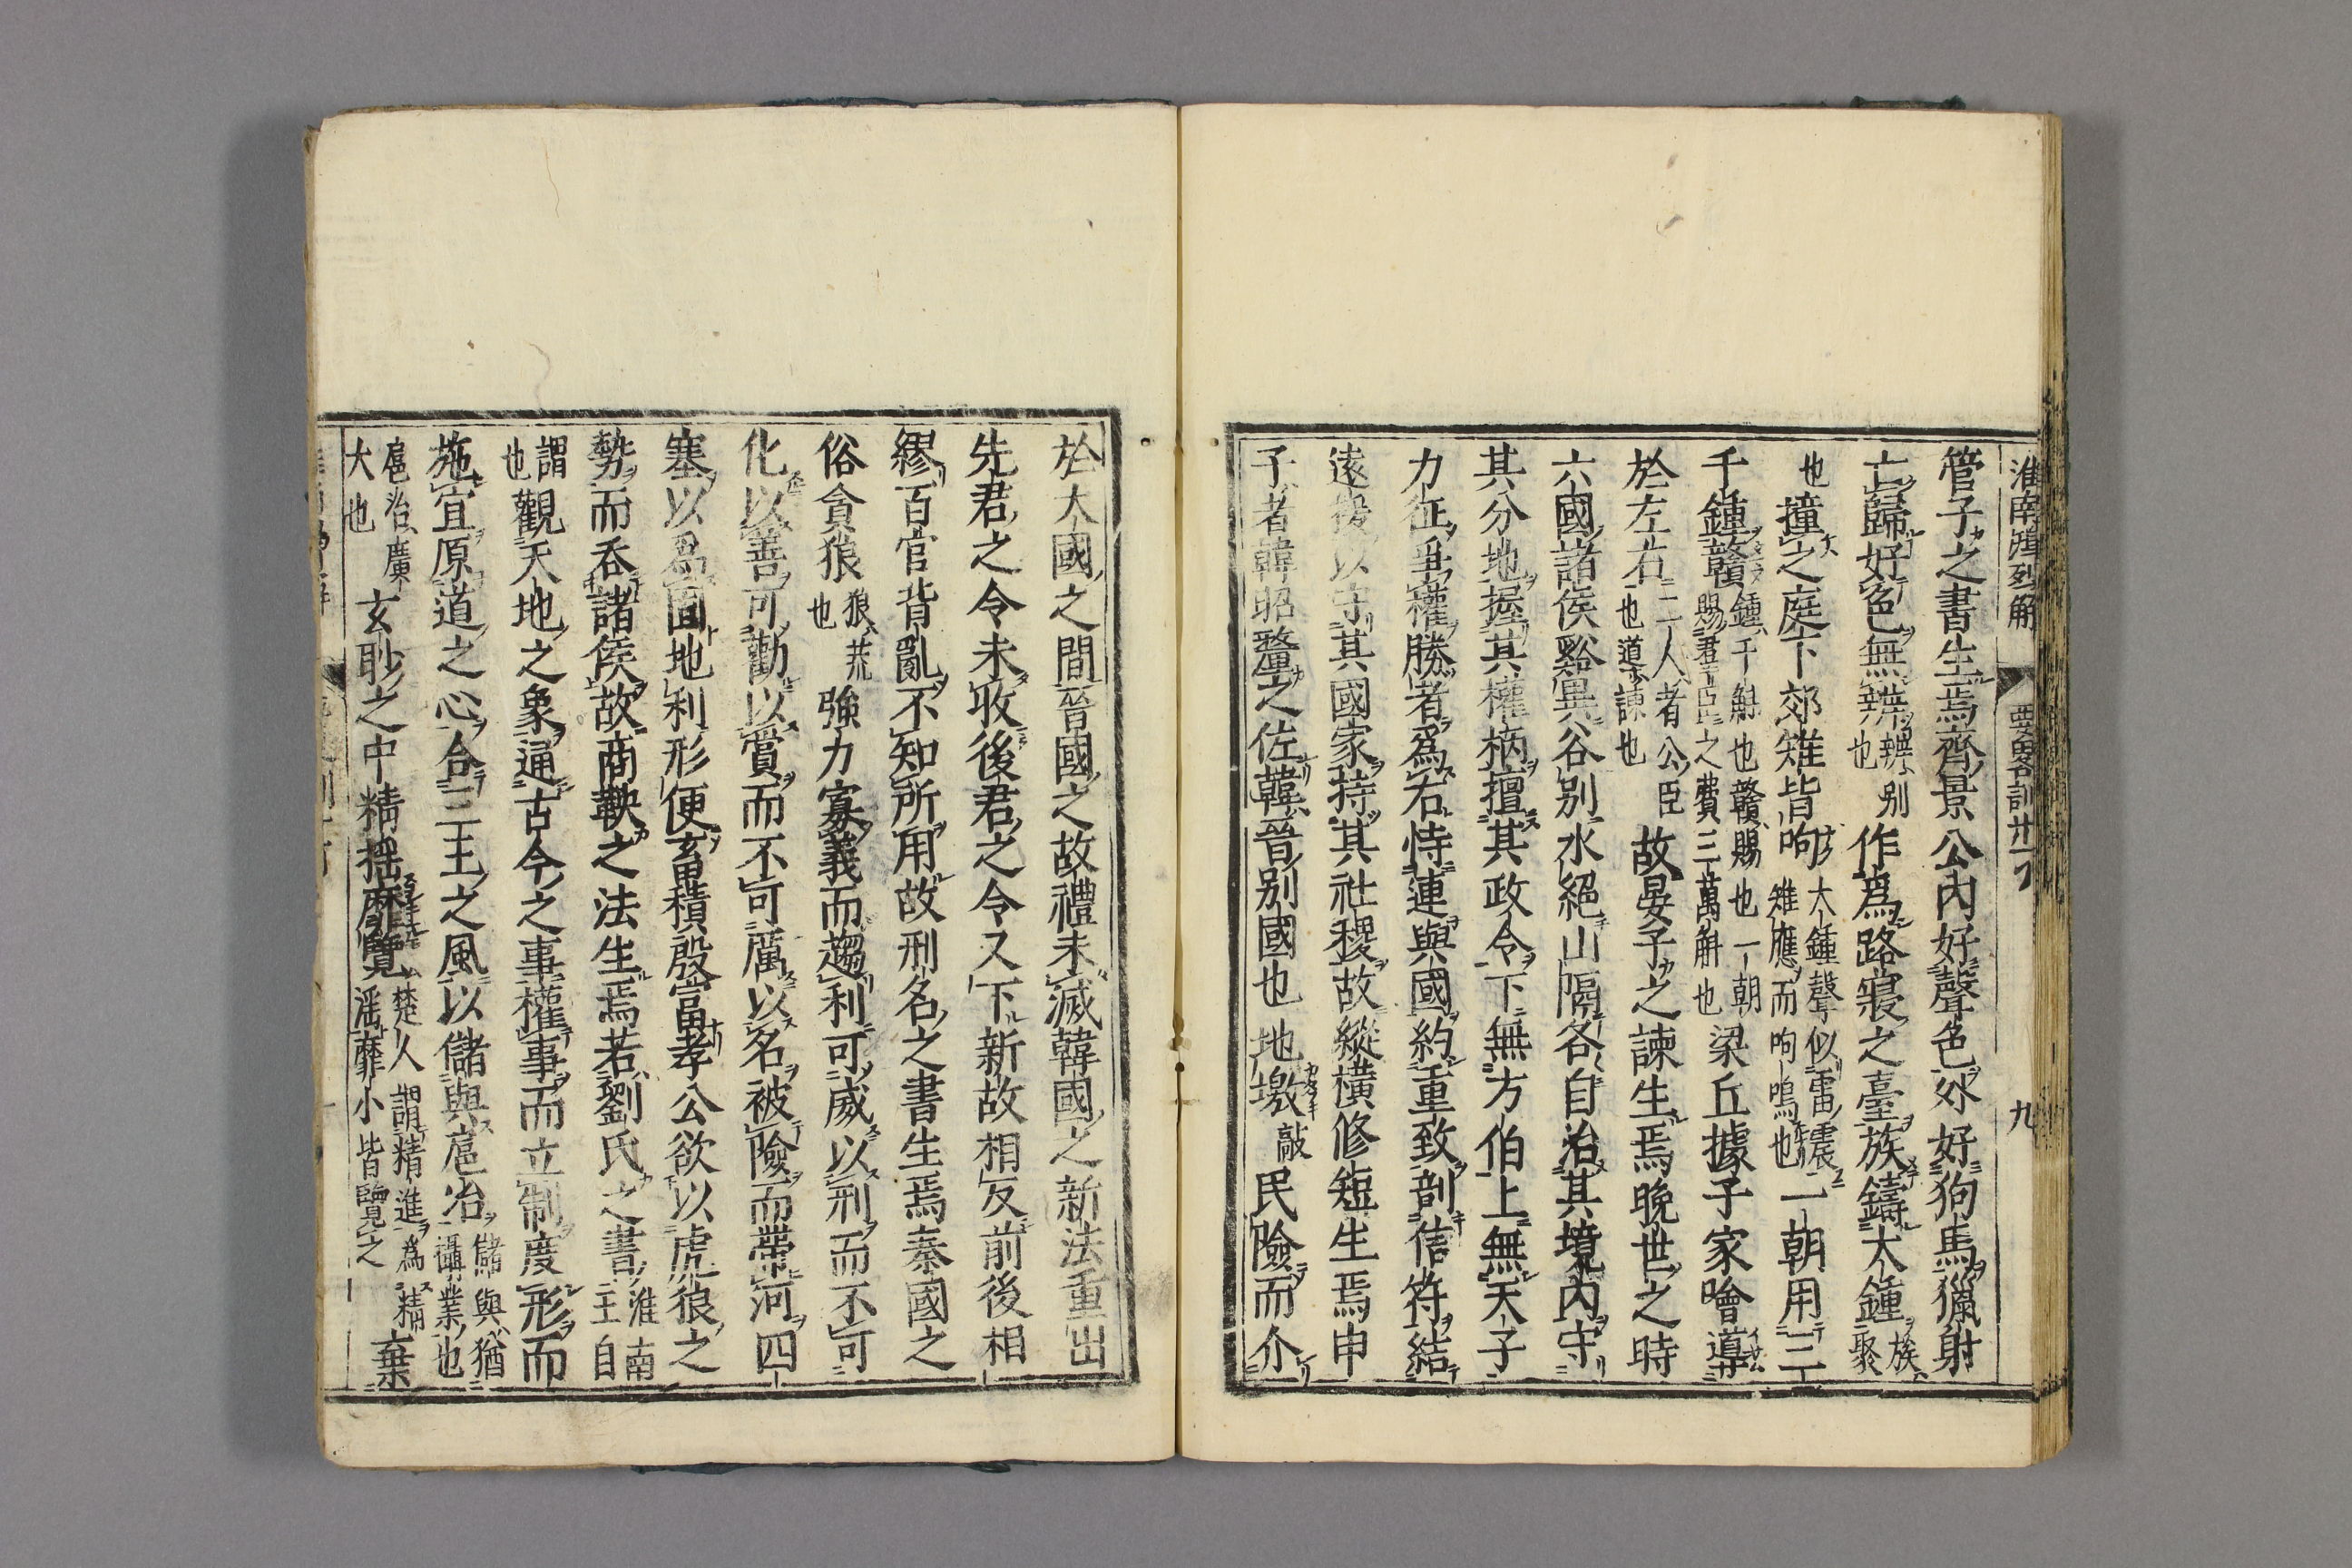 淮南鴻烈解 要畧訓廿一 九
管子之書生焉齊景公內好聲色外好狗馬獵射
亡歸好色無辨辨別也作爲路寢之臺族鑄大鍾族聚
也撞之庭下郊雉皆呴大鍾聲似雷震雉應而呴鳴也一朝用三
千鍾贛鍾千斛也贛賜也一朝賜羣臣之費三萬斛也梁丘據子家噲導
於左右二人者公臣也道諫也故晏子之諫生焉晚世之時
六國諸侯谿異谷別水絕山隔各自治其境內守
其分地握其權柄擅其政令下無方伯上無天子
力征爭權勝者爲右恃連與國約重致剖信符結
遠援以守其國家持其社稷故縱橫修短生焉申
子者韓昭釐之佐韓晉別國也地墩敲民險而介
於大國之間晉國之故禮未滅韓國之新法重出
先君之令未收後君之令又下新故相反前後相
繆百官背亂不知所用故刑名之書生焉秦國之
俗貪狼狼荒也強力寡義而趨利可威以刑而不可
化以善可勸以賞而不可厲以名被險而帶河四
塞以爲固地利形便畜積殷富孝公欲以虎狼之
勢而吞諸侯故商鞅之法生焉若劉氏之書淮南王自
謂也觀天地之象通古今之事權事而立制度形而
施宜原道之心合三王之風以儲與扈冶儲與猶攝業也
扈冶廣大也玄眇之中精搖靡覽楚人謂精進爲精搖靡小皆覽之棄